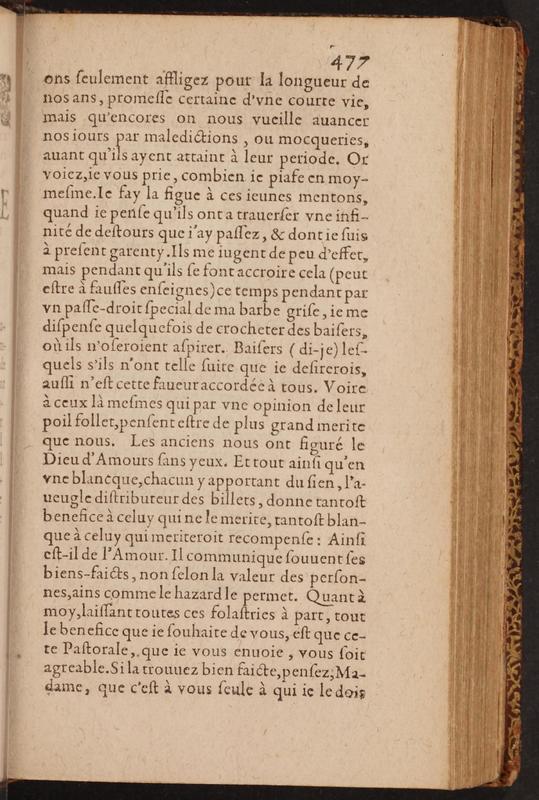 477
ons ſeulement affligez pour la longueur de
nos ans, promeſſe certaine d'vne courte vie,
mais qu'encores on nous vueille auancer
nos iours par maledictions, ou mocqueries,
auant qu'ils ayent attaint à leur periode. Or
voiez, ie vous prie, combien ie piafe en moy-
meſme. Ie fay la figue à ces ieunes mentons,
quand ie penſe qu'ils ont a trauerſer vne infi-
nité de deſtours que i'ay paſſez, & dont ie ſuis
à preſent garenty. Ils me iugent de peu d'effet,
mais pendant qu'ils ſe font accroire cela (peut
eſtre à fauſſes enſeignes) ce temps pendant par
vn paſſe-droit ſpecial de ma barbe griſe, ie me
diſpenſe quelquefois de crocheter des baiſers,
où ils n'oſeroient aſpirer. Baiſers (di-je) leſ-
quels s'ils n'ont telle ſuite que ie deſirerois,
auſſi n'eſt cette faueur accordée à tous. Voire
à ceux là meſmes qui par vne opinion de leur
poil follet, penſent eſtre de plus grand merite
que nous. Les anciens nous ont figuré le
Dieu d'Amours ſans yeux. Et tout ainſi qu'en
vne blancque, chacun y apportant du ſien, l'a-
ueugle diſtributeur des billets, donne tantoſt
benefice à celuy qui ne le merite, tantoſt blan-
que à celuy qui meriteroit recompenſe: Ainſi
eſt-il de l'Amour. Il communique ſouuent ſes
biens-faicts, non ſelon la valeur des perſon-
nes, ains comme le hazard le permet. Quant à
moy, laiſſant toutes ces folaſtries à part, tout
le benefice que ie ſouhaite de vous, eſt que ce-
te Paſtorale, que ie vous enuoie, vous ſoit
agreable. Si la trouuez bien faicte, penſez, Ma-
dame, que c'eſt à vous ſeule à qui ie le dois